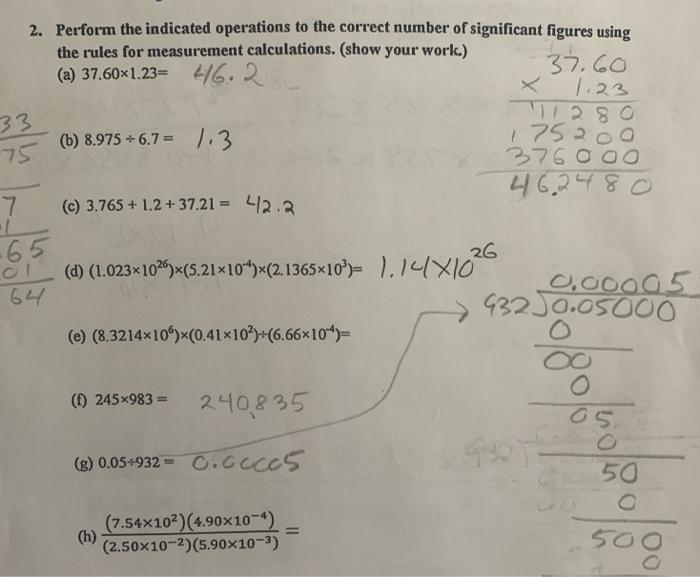 2. Perform the indicated operations to the correct number of significant figures using
the rules for measurement calculations. (show your work.)
(a) 37.60×1.23= 46.2
37.60
× 1.23
11280
75200
376000
46.2480
33
75
(b) 8.975 ÷ 6.7 = 1.3
7
(c) 3.765 + 1.2 + 37.21 = 42.2
65
01
64
(d) (1.023×10²⁶)×(5.21×10⁻⁴)×(2.1365×10³)= 1.14×10²⁶
0.00005
932)0.05000
0
00
0
05
0
50
0
500
0
(e) (8.3214×10⁶)×(0.41×10²)÷(6.66×10⁻⁴)=
(f) 245×983 = 240,835
(g) 0.05÷932 = 0.00005
(h) (7.54×10²)(4.90×10⁻⁴) =
(2.50×10⁻²)(5.90×10⁻³)